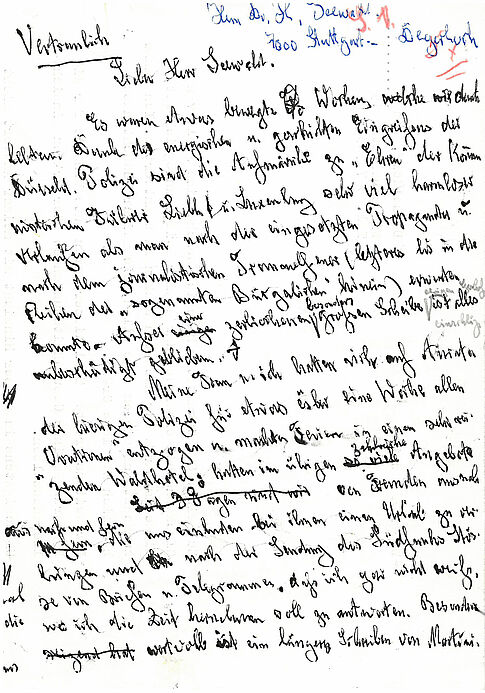 Herrn Dr. H. Seewald.
7000 Stuttgart - Degerloch
Vertraulich
Lieber Herr Seewald.
Es waren etwas bewegte Wochen, welche wir durch
lebten. Dank des energischen u. geschickten Eingreifens der
Düsseld. Polizei sind die Aufmärsche zu „Ehren" der Kommu
nistischen Führer Liebk. u. Luxemburg sehr viel harmloser
verlaufen als man nach der eingesetzten Propaganda u.
nach dem journalistischen Trommelfeuer (letzteres bis in die
Reihen der „sogenannten Bürgerlichen" hinein) erwarten
konnte. Ausser eine zerbrochenen besonders grossen Scheibe ist alles
unbeschädigt geblieben.
Meine Frau u. ich hatten sich auf Anraten
der hiesigen Polizei für etwas über eine Woche allen
„Ovationen" entzogen u. machten Ferien in einem sehr rei-
zenden Waldhotel; hatten im übrigen zahlreiche Angebote
von Freunden sowohl
aus nah und fern, die uns einluden bei ihnen einen Urlaub zu ver
bringen und nach der Sendung des Südfunks Stös-
se von Briefen u. Telegrammen, daß ich gar nicht weiß,
wo ich die Zeit hernehmen soll zu antworten. Besonders
wertvoll ist ein längeres Schreiben von Martini.